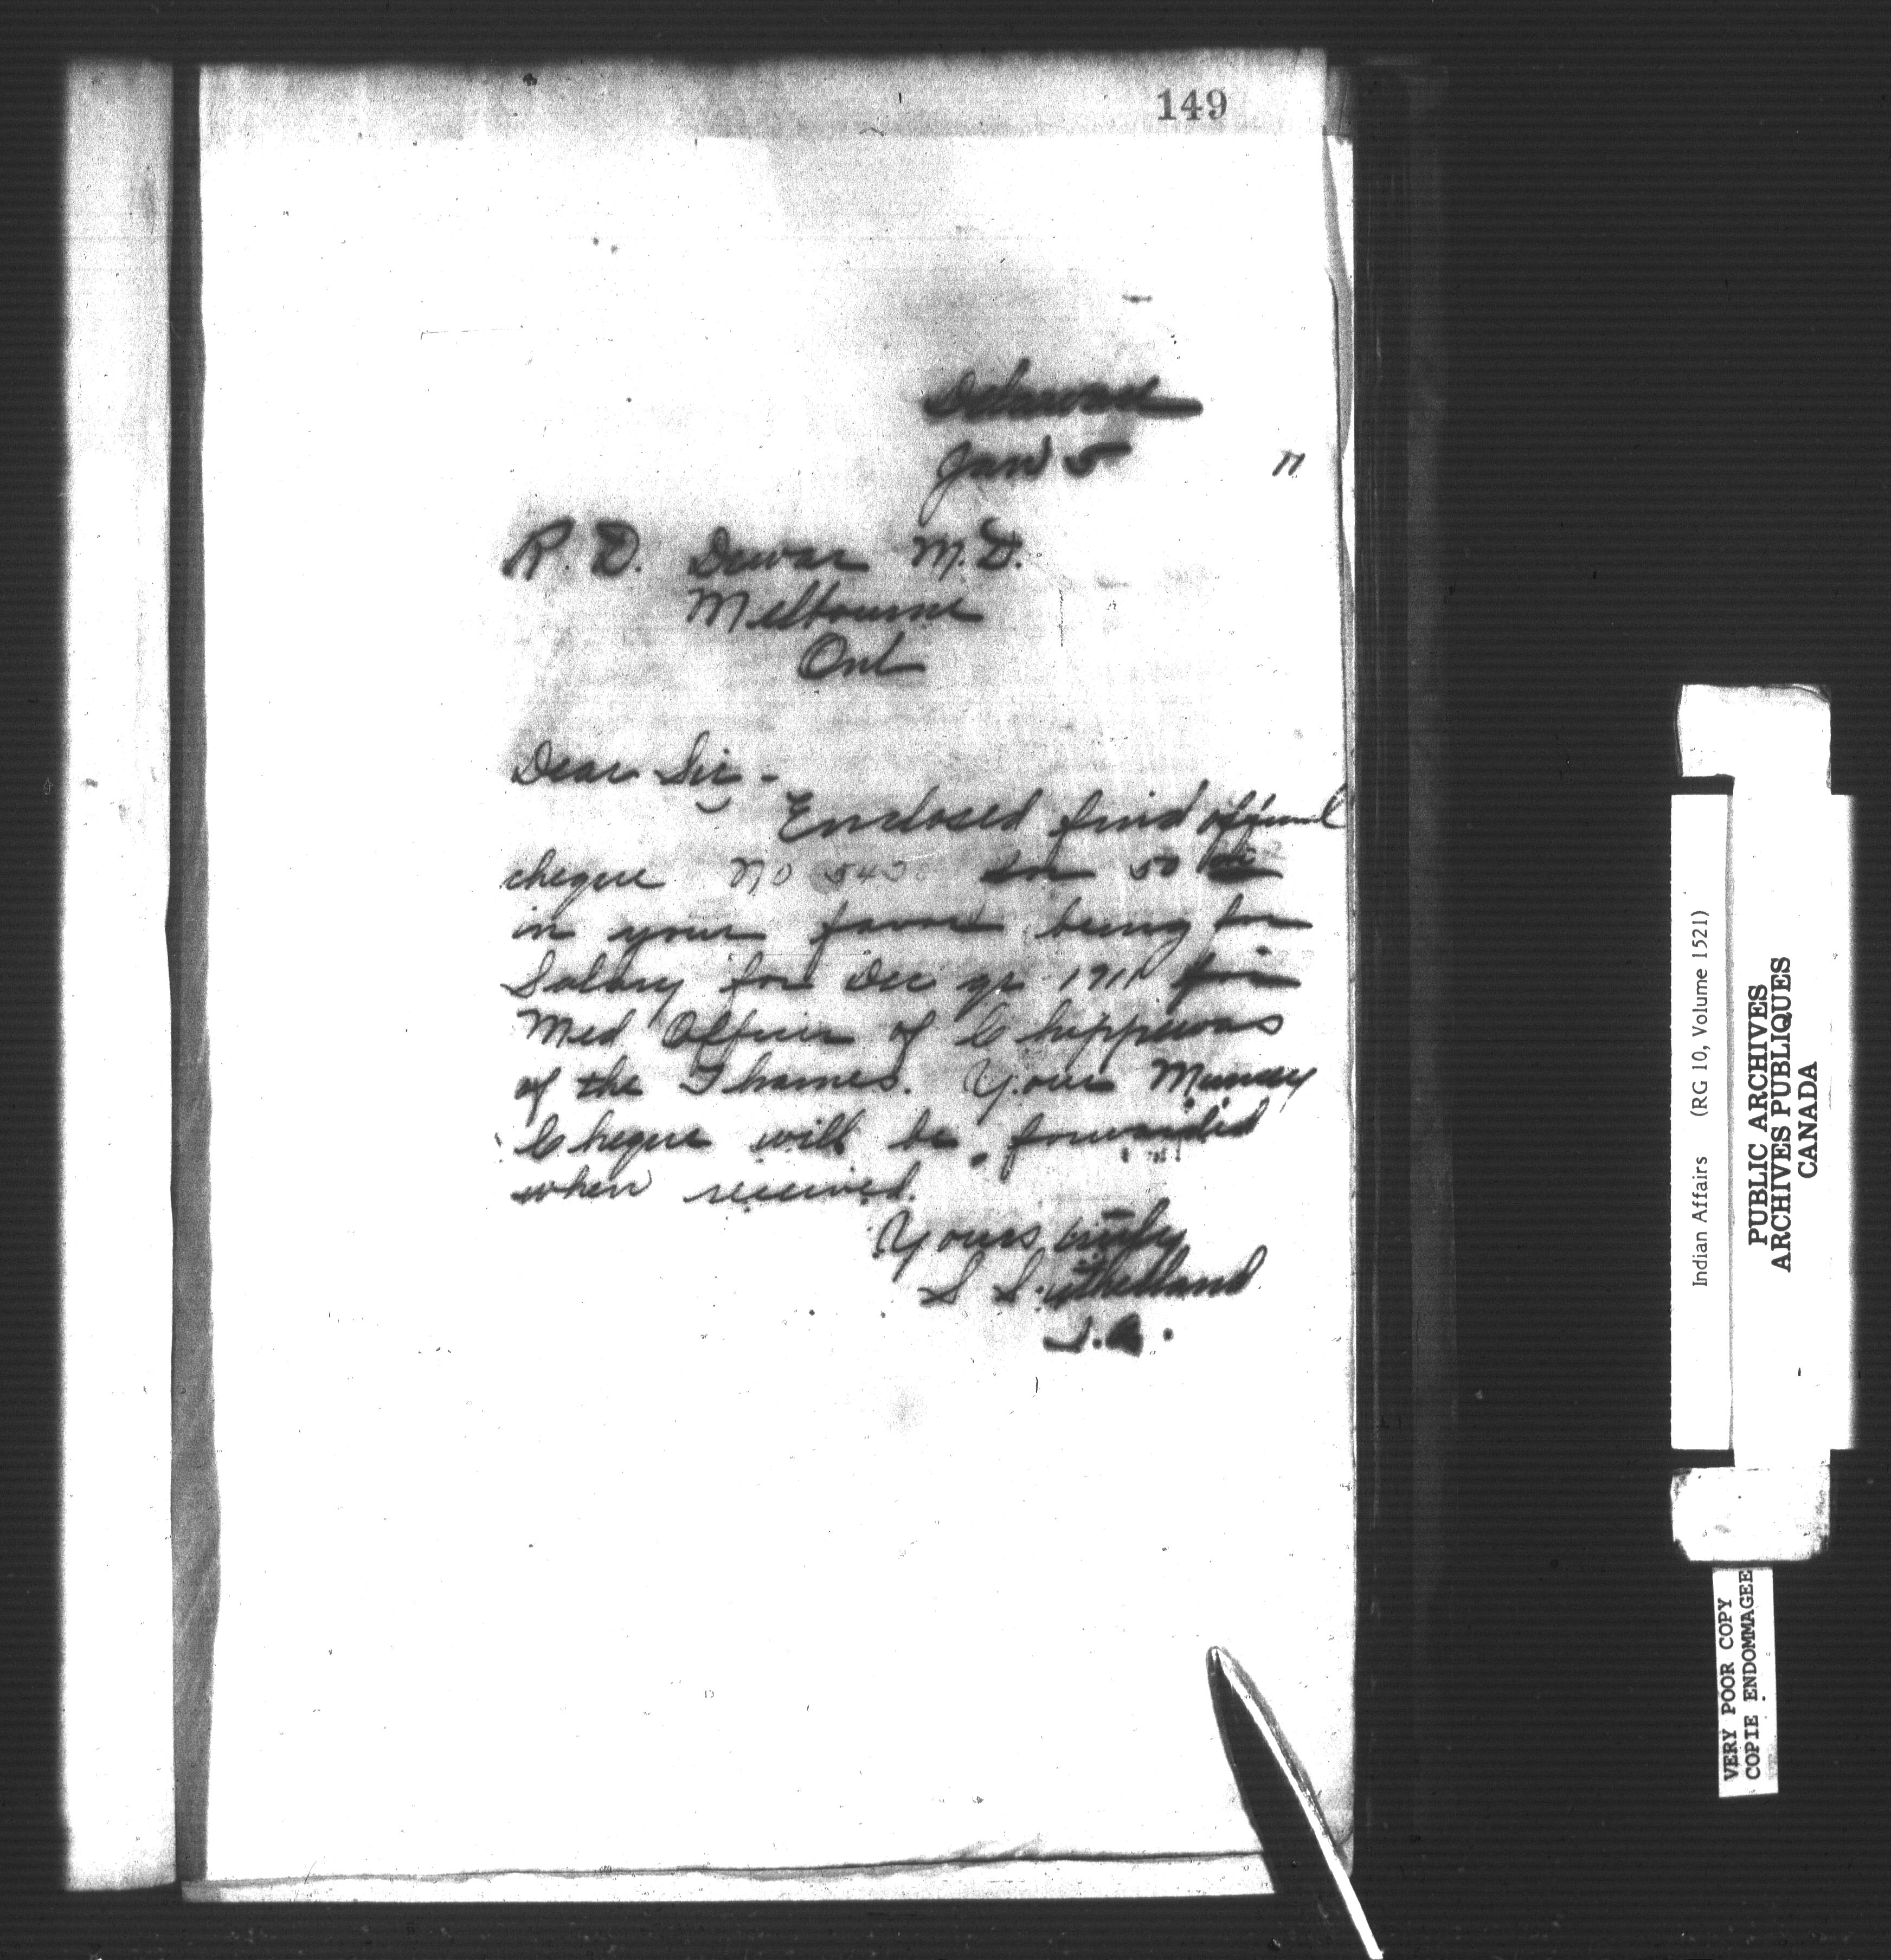 149
Delaware
Jan 5 11
R. D. Dewar M.D.
Melbourne
Ont
Dear Sir -
Enclosed find official
cheque No 50
in your favor being for
Salary for Dec qr 1911 for
Med Officer of Chippewas
of the Thames. Your Muncey
Cheque will be forwarded
when received.
Yours truly
S Sutherland
I.A.
Indian Affairs (RG 10, Volume 1521)
PUBLIC ARCHIVES
ARCHIVES PUBLIQUES
CANADA
VERY POOR COPY
COPIE ENDOMMAGEE